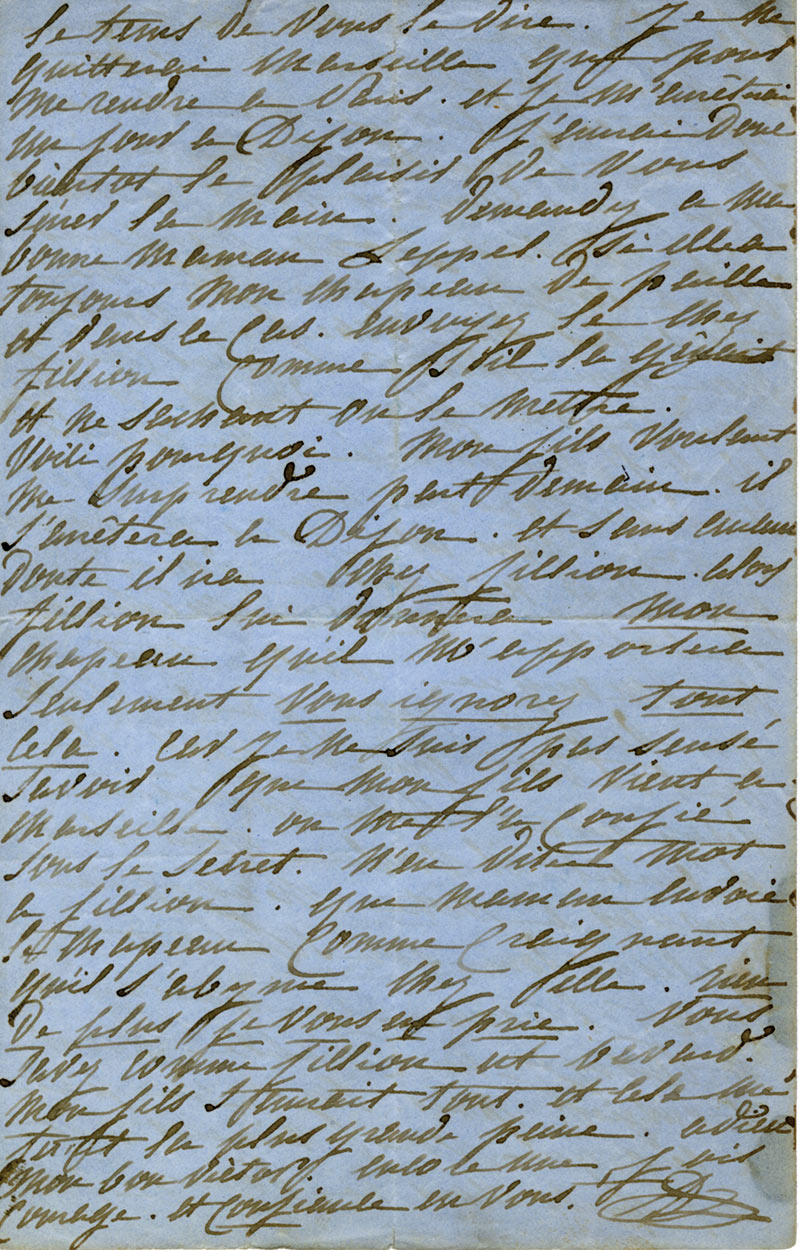 le tems de vous le dire. Je ne
quitterai Marseille que pour
me rendre a Paris. et je m'arrêterai
un jour a Dijon. J'aurai donc
bientot le plaisir de vous
serrer la main. demandez a ma
bonne maman Seppel. si elle a
toujours mon chapeau de paille
et dans ce cas. envoyez le chez
fillion comme s'il la gênait
et ne sachant ou le mettre.
Voila pourquoi. mon fils voulant
me surprendre part demain. il
s'arrêtera a Dijon. et sans aucun
doute il ira chez fillion. alors
fillion lui donnera mon
chapeau qu'il m'apportera
seulement vous ignorez tout
cela. car je ne suis pas sensé
savoir que mon fils vient a
Marseille. on me l'a confié
sous le secret. n'en dites mot
a fillion. que maman envoie
le chapeau comme craignant
qu'il s'abyme chez elle. rien
de plus je vous en prie. Vous
savez comme fillion est bavard.
mon fils saurait tout. et cela me
ferait la plus grande peine. adieu
mon bon victor. encore une fois
courage. et confiance en vous.